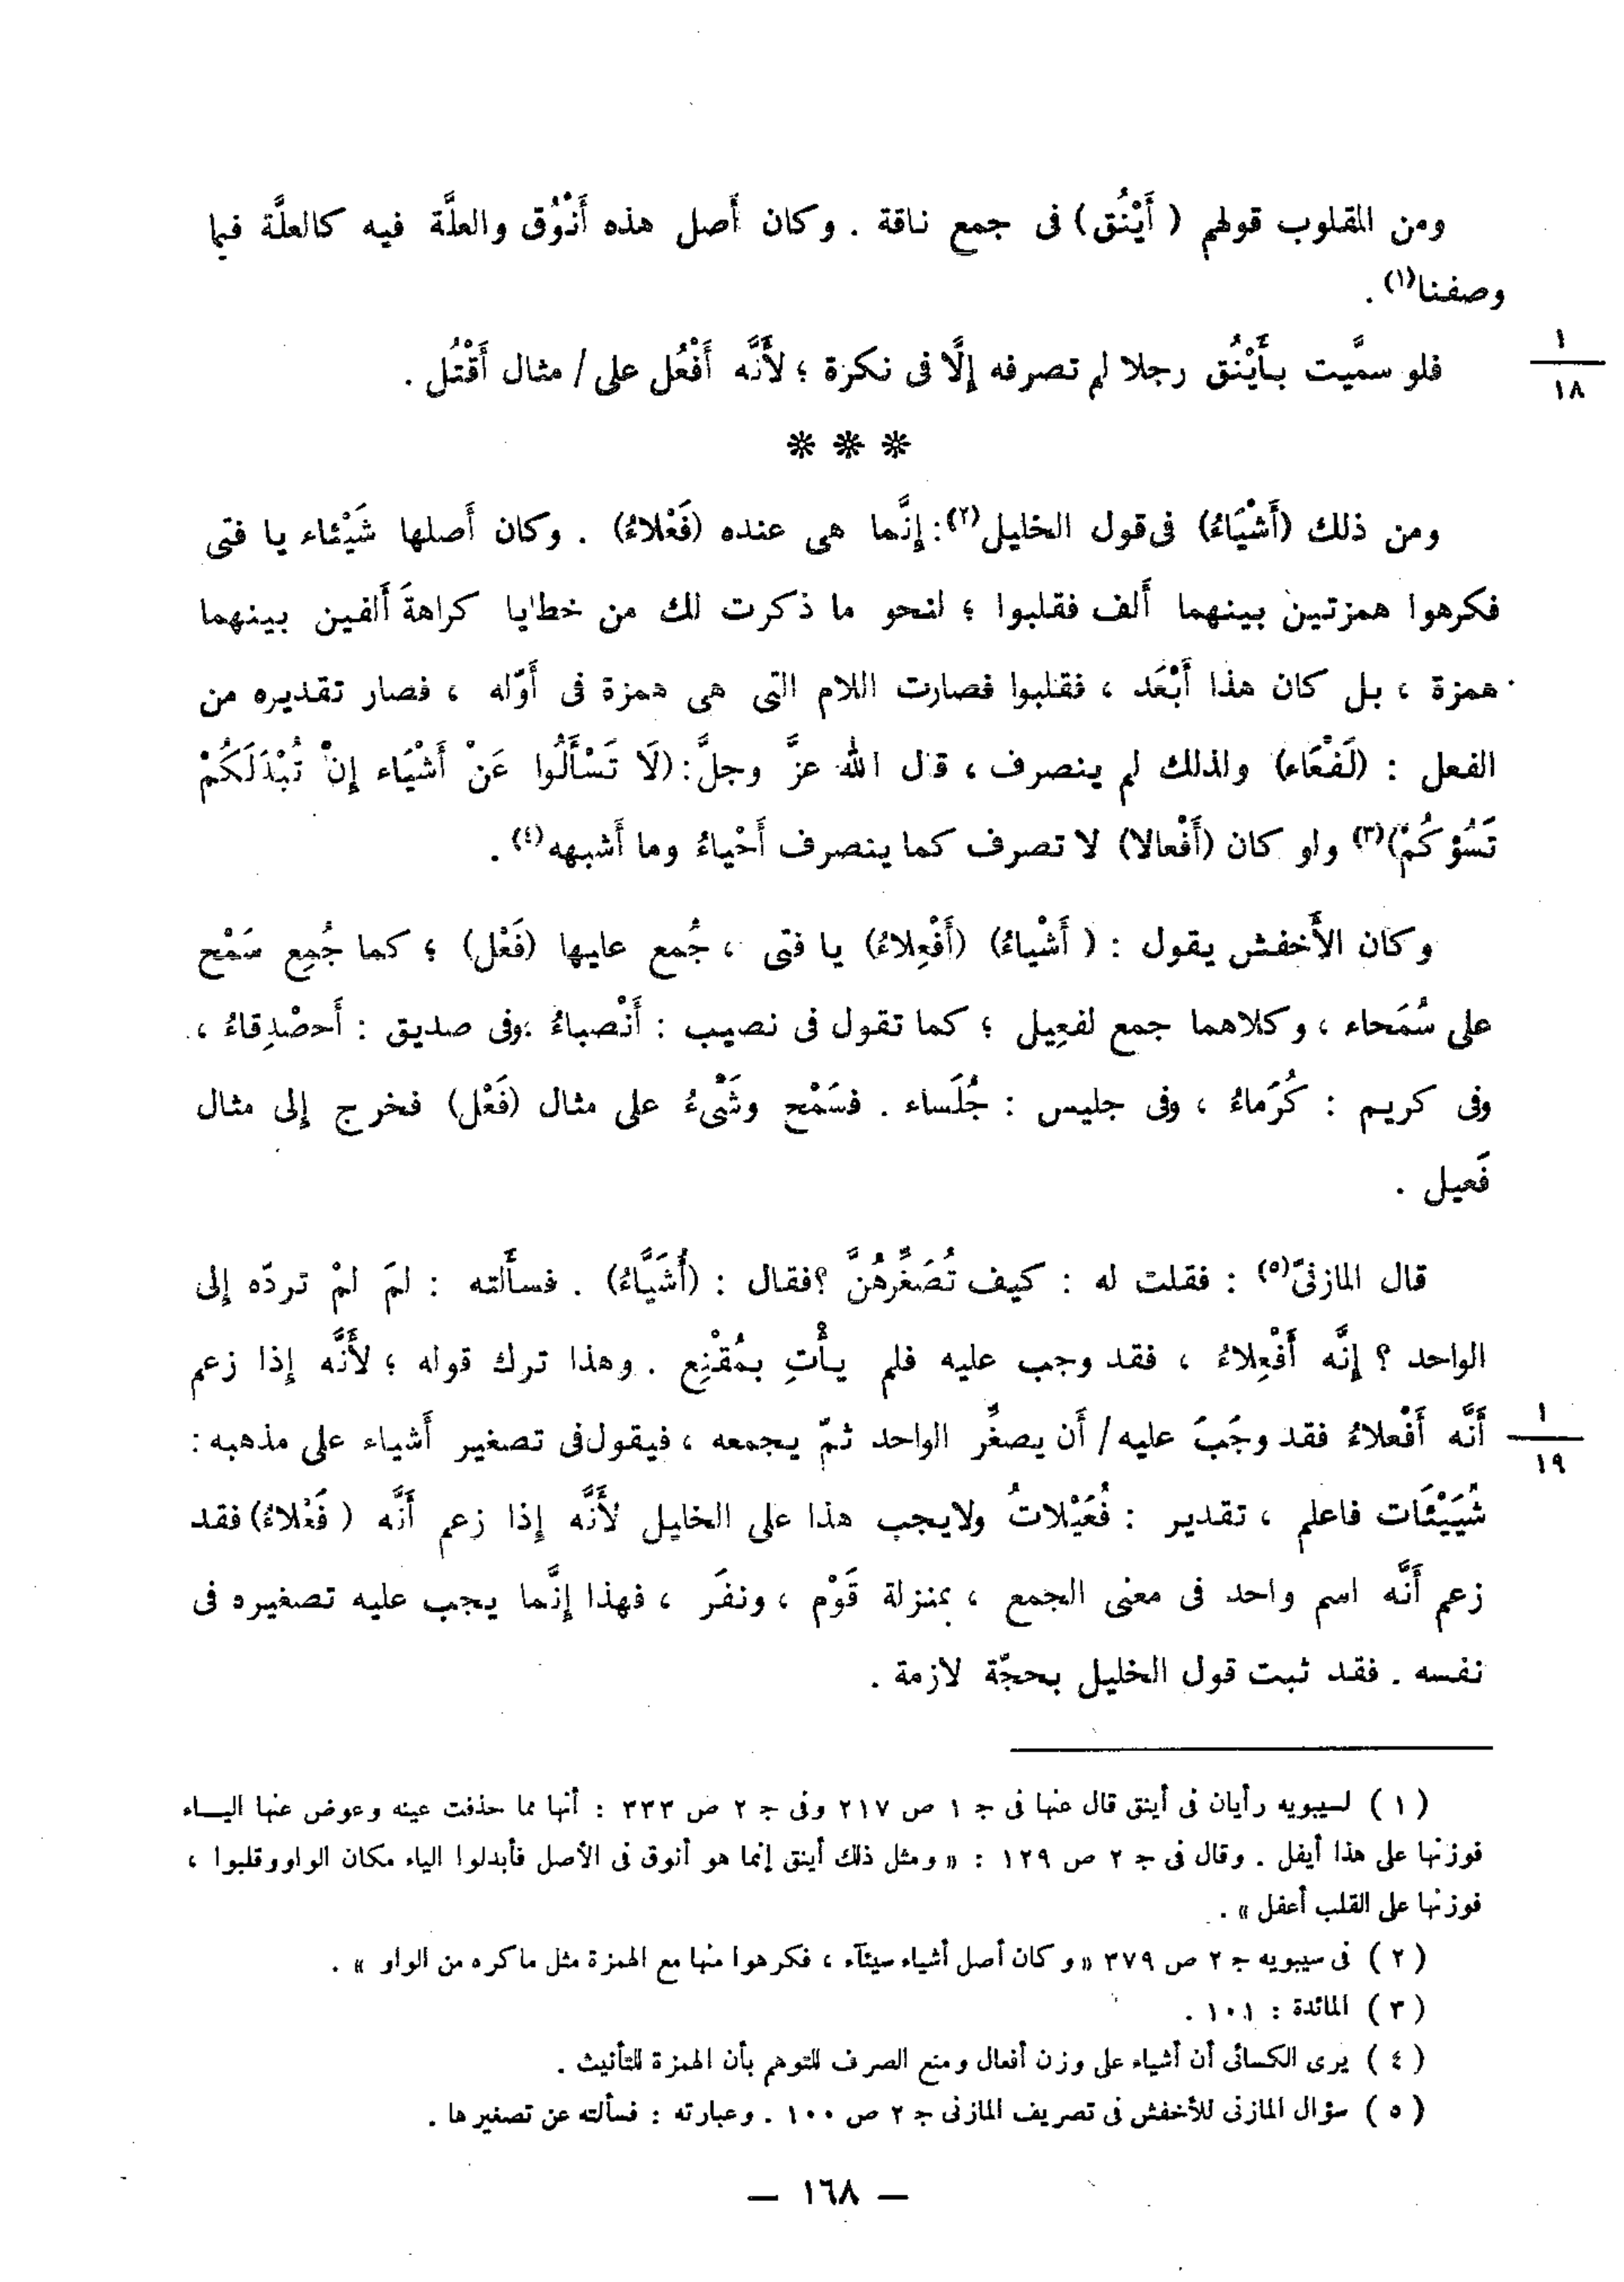 ومن المقلوب قولهم ( أَيْنُق ) فى جمع ناقة . وكان أَصل هذه أَنْوُق والعلَّة فيه كالعلَّة فيما
وصفنا(١) .
١
١٨
فلو سمَّيت بأَيْنُق رجلا لم تصرفه إِلَّا فى نكرة ؛ لأَنَّه أَفْعُل على / مثال أَقْتُل .
* * *
ومن ذلك (أَشْيَاءُ) فى قول الخليل(٢): إِنَّما هى عنده (فَعْلاءُ) . وكان أَصلها شَيْئاء يا فتى
فكرهوا همزتين بينهما أَلف فقلبوا ؛ لنحو ما ذكرت لك من خطايا كراهةَ أَلفين بينهما
همزة ، بل كان هذا أَبْعَد ، فقلبوا فصارت اللام التى هى همزة فى أَوّله ، فصار تقديره من
الفعل : (لَفْعَاء) ولذلك لم ينصرف ، قال الله عزَّ وجلَّ : (لَا تَسْأَلُوا عَنْ أَشْيَاء إِنْ تُبْدَلَكُمْ
تَسُؤكُمْ)(٣) ولو كان (أَفْعالا) لا تصرف كما ينصرف أَحْياءُ وما أَشبهه(٤) .
وكان الأَخفش يقول : ( أَشْياءُ) (أَفْعِلاءُ) يا فتى ، جُمع عليها (فَعْل) ؛ كما جُمِع سَمْح
على سُمَحاء ، وكلاهما جمع لفعِيل ؛ كما تقول فى نصيب : أَنْصباءُ ؛وفى صديق : أَحصْدِقاءُ ،
وفى كريم : كُرَماءُ ، وفى جليس : جُلَساء . فسَمْح وشَىْءُ على مثال (فَعْل) فخرج إلى مثال
فَعيل .
قال المازنىّ(٥) : فقلت له : كيف تُصَغِّرهُنَّ ؟فقال : (أُشَيَّاءُ) . فسأَلته : لمَ لمْ تردّه إلى
الواحد ؟ إِنَّه أَفْعِلاءُ ، فقد وجب عليه فلم يأْتِ بمُقْنِع . وهذا ترك قوله ؛ لأَنَّه إذا زعم
أَنَّه أَفْعلاءُ فقد وجَبَ عليه / أَن يصغِّر الواحد ثمّ يجمعه ، فيقول فى تصغير أَشياء على مذهبه :
١
١٩
شُيَيْئَات فاعلم ، تقدير : فُعَيْلاتُ ولايجب هذا على الخليل لأَنَّه إذا زعم أَنَّه ( فَعْلاءُ) فقد
زعم أَنَّه اسم واحد فى معنى الجمع ، بمنزلة قَوْم ، ونفَر ، فهذا إِنَّما يجب عليه تصغيره فى
نفسه . فقد ثبت قول الخليل بحجّة لازمة .
( ١ ) لسيبويه رأيان فى أينق قال عنها فى ج ١ ص ٢١٧ وفى ج ٢ ص ٣٣٣ : أنها مما حذفت عينه وعوض عنها اليــاء
فوزنها على هذا أيفل . وقال فى ج ٢ ص ١٢٩ : « ومثل ذلك أينق إنما هو أنوق فى الأصل فأبدلوا الياء مكان الواو وقلبوا ،
فوزنها على القلب أعفل » .
( ٢ ) فى سيبويه ج ٢ ص ٣٧٩ « وكان أصل أشياء سيئآء ، فكرهوا منها مع الهمزة مثل ما كره من الواو » .
( ٣ ) المائدة : ١٠١ .
( ٤ ) يرى الكسائى أن أشياء على وزن أفعال ومنع الصرف للتوهم بأن الهمزة للتأنيث .
( ٥ ) سؤال المازنى للأخفش فى تصريف المازنى ج ٢ ص ١٠٠ . وعبارته : فسألته عن تصغيرها .
— ١٦٨ —